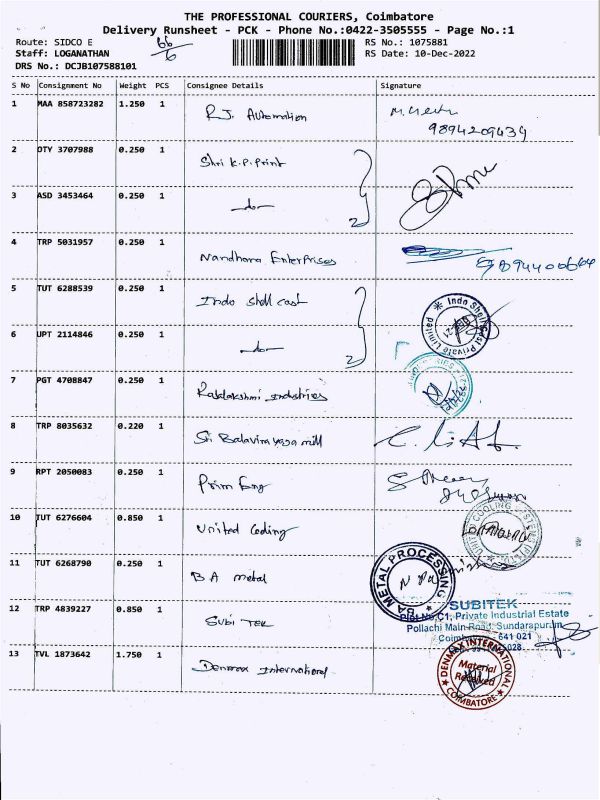 THE PROFESSIONAL COURIERS, Coimbatore
Delivery Runsheet - PCK - Phone No.:0422-3505555 - Page No.:1
Route: SIDCO E 66/6 RS No.: 1075881
Staff: LOGANATHAN RS Date: 10-Dec-2022
DRS No.: DCJB107588101
S No Consignment No Weight PCS Consignee Details Signature
1 MAA 858723282 1.250 1 R.J. Automation
9894209434
2 OTY 3707988 0.250 1 Shri K.P. Print
3 ASD 3453464 0.250 1 -do- 2
4 TRP 5031957 0.250 1 Nandhana Enterprises
5 TUT 6288539 0.250 1 Indo shell cast Indo Shell Cast Private Limited
6 UPT 2114846 0.250 1 -do- 2
7 PGT 4708847 0.250 1 Industries
8 TRP 8035632 0.220 1 Sri Balavinayaga mill
9 RPT 2050083 0.250 1 Prim Eng
10 TUT 6276604 0.850 1 United Cooling UNITED COOLING SYSTEMS
11 TUT 6268790 0.250 1 B.A metal BA METAL PROCESSING
12 TRP 4839227 0.850 1 Subi Tek SUBITEK
Plot No.C1, Private Industrial Estate
Pollachi Main Road, Sundarapuram
Coimbatore - 641 021
13 TVL 1873642 1.750 1 Denmax International DENMAX INTERNATIONAL
Material
Received
COIMBATORE